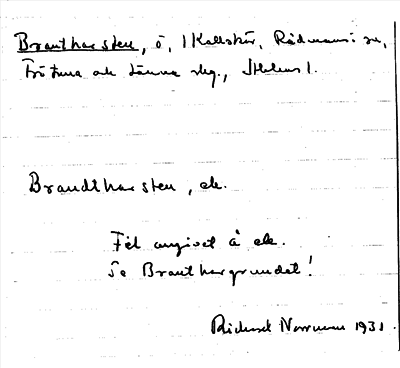 Brantharsten, ö, i Kallskär, Rådmansö sn,
Frötuna och Länna slg., Sthlms l.
Brandtharsten, ek.
Fel angivet å ek.
Se Branthargrundet!
Rickard Norrman 1931.